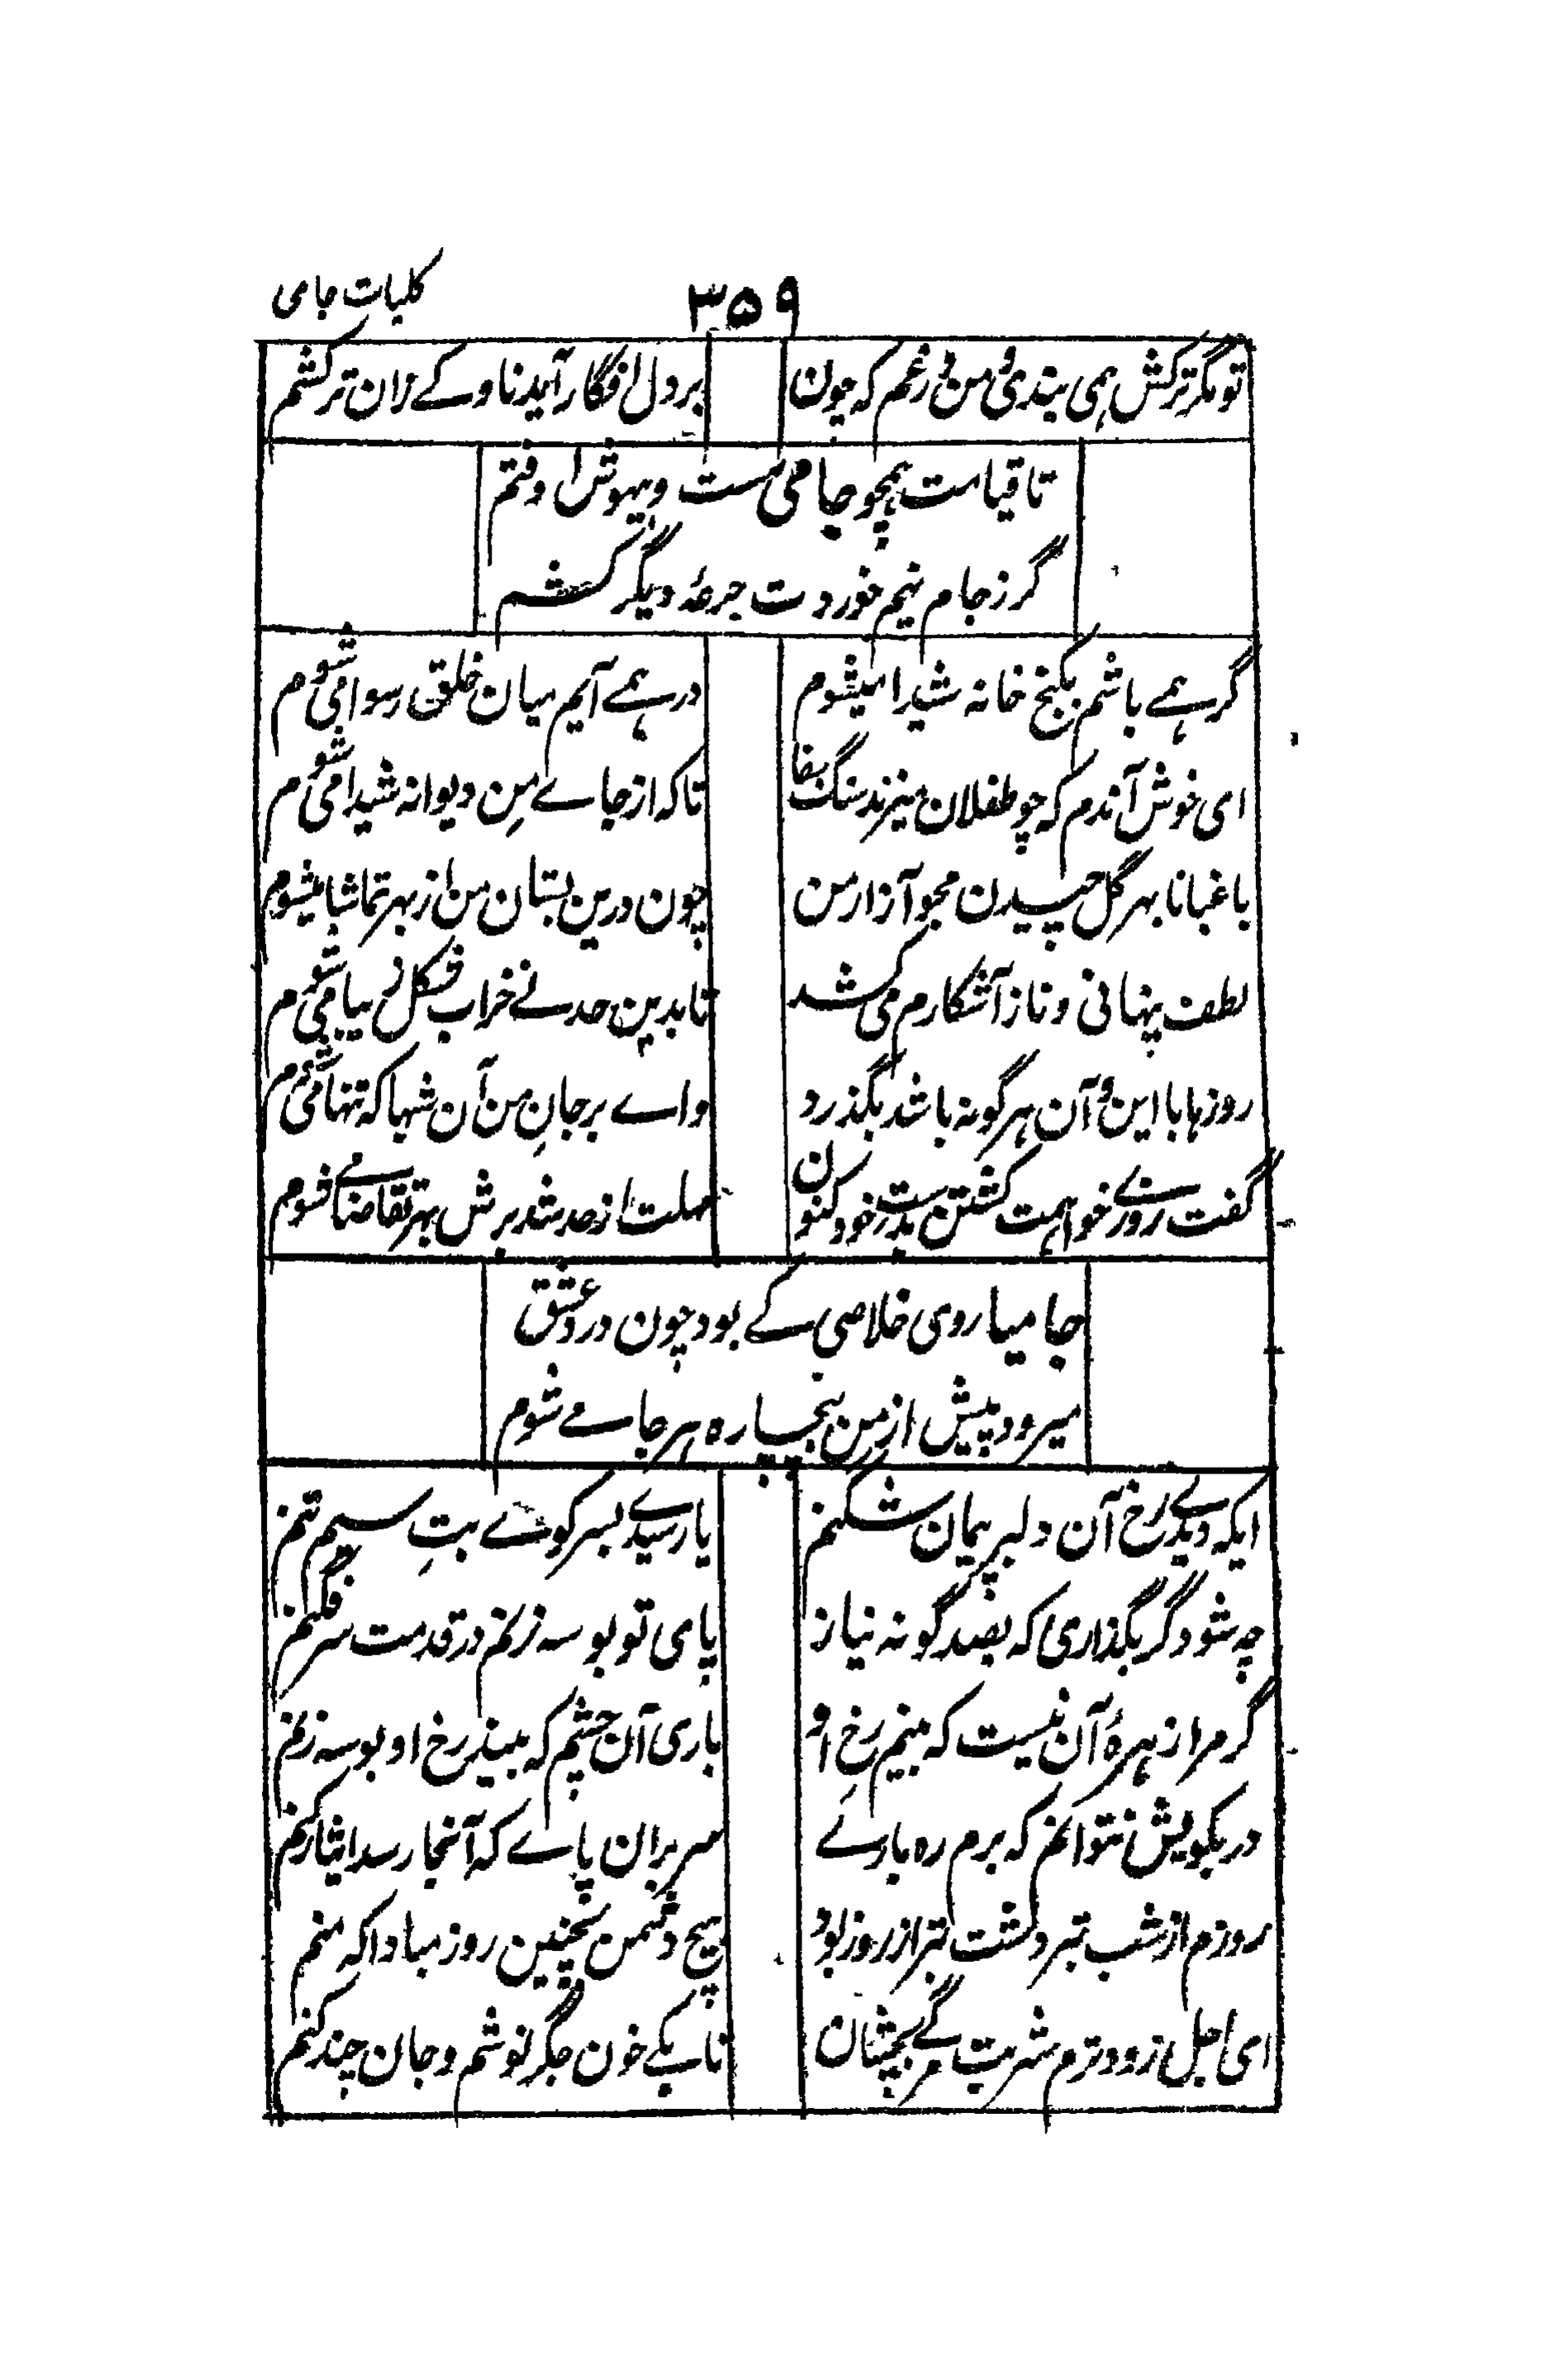 کلیات جامی
۳۵۹
تو مگر ترکش همی بندی و من در غم که چون
بر دل افگار آید ناوکے زان ترکشم
تا قیامت همچو جامی مست و بیهوش اوفتم
گر ز جام نیم خوردت جرعهٔ دیگر کشم
گر همے باشم بکنج خانه شیدا میشوم
در همے آیم میان خلق رسوا می شوم
ای خوش آندم که چو طفلان میزند سنگ جفا
تا که از جاے من دیوانه شیدا می شوم
باغبانا بهر گل چیدن مجو آزار من
چون درین بستان من از بهر تماشا میشوم
لطف پنهانی و ناز آشکارم می کشد
تا بدین حد نے خراب شکل زیبا می شوم
روزها با این و آن هر گونه باشد بگذرد
واے بر جانِ من آن شبها که تنها می شوم
گفت روزے خواهمت کشتن بدست خود کنون
مهلت از حد شد برش بهر تقاضا مے شوم
جامیا روی خلاصی کے بود چون درد عشق
میرود پیش از من بیچاره هر جا مے شوم
ایکه دیدے رخ آن دلبر پیمان شکنم
یا رسیدے بسر کوے بتِ سیم تنم
چه شود گر بگذاری که بصد گونه نیاز
پای تو بوسه زنم در قدمت سر فگنم
گر مرا زهرهٔ آن نیست که بینم رخ او
باری آن چشم که بیند رخ او بوسه زنم
در بکویش نتوانم که برم ره بارے
سر بران پاے که آنجا رسد ایثار کنم
روزم از شب بتر و شب بتر از روز بود
هیچ دشمن بچنین روز مبادا که منم
ای اجل زود ترم شربت مرگے بچشان
تا بکے خون جگر نوشم و جان چند کنم